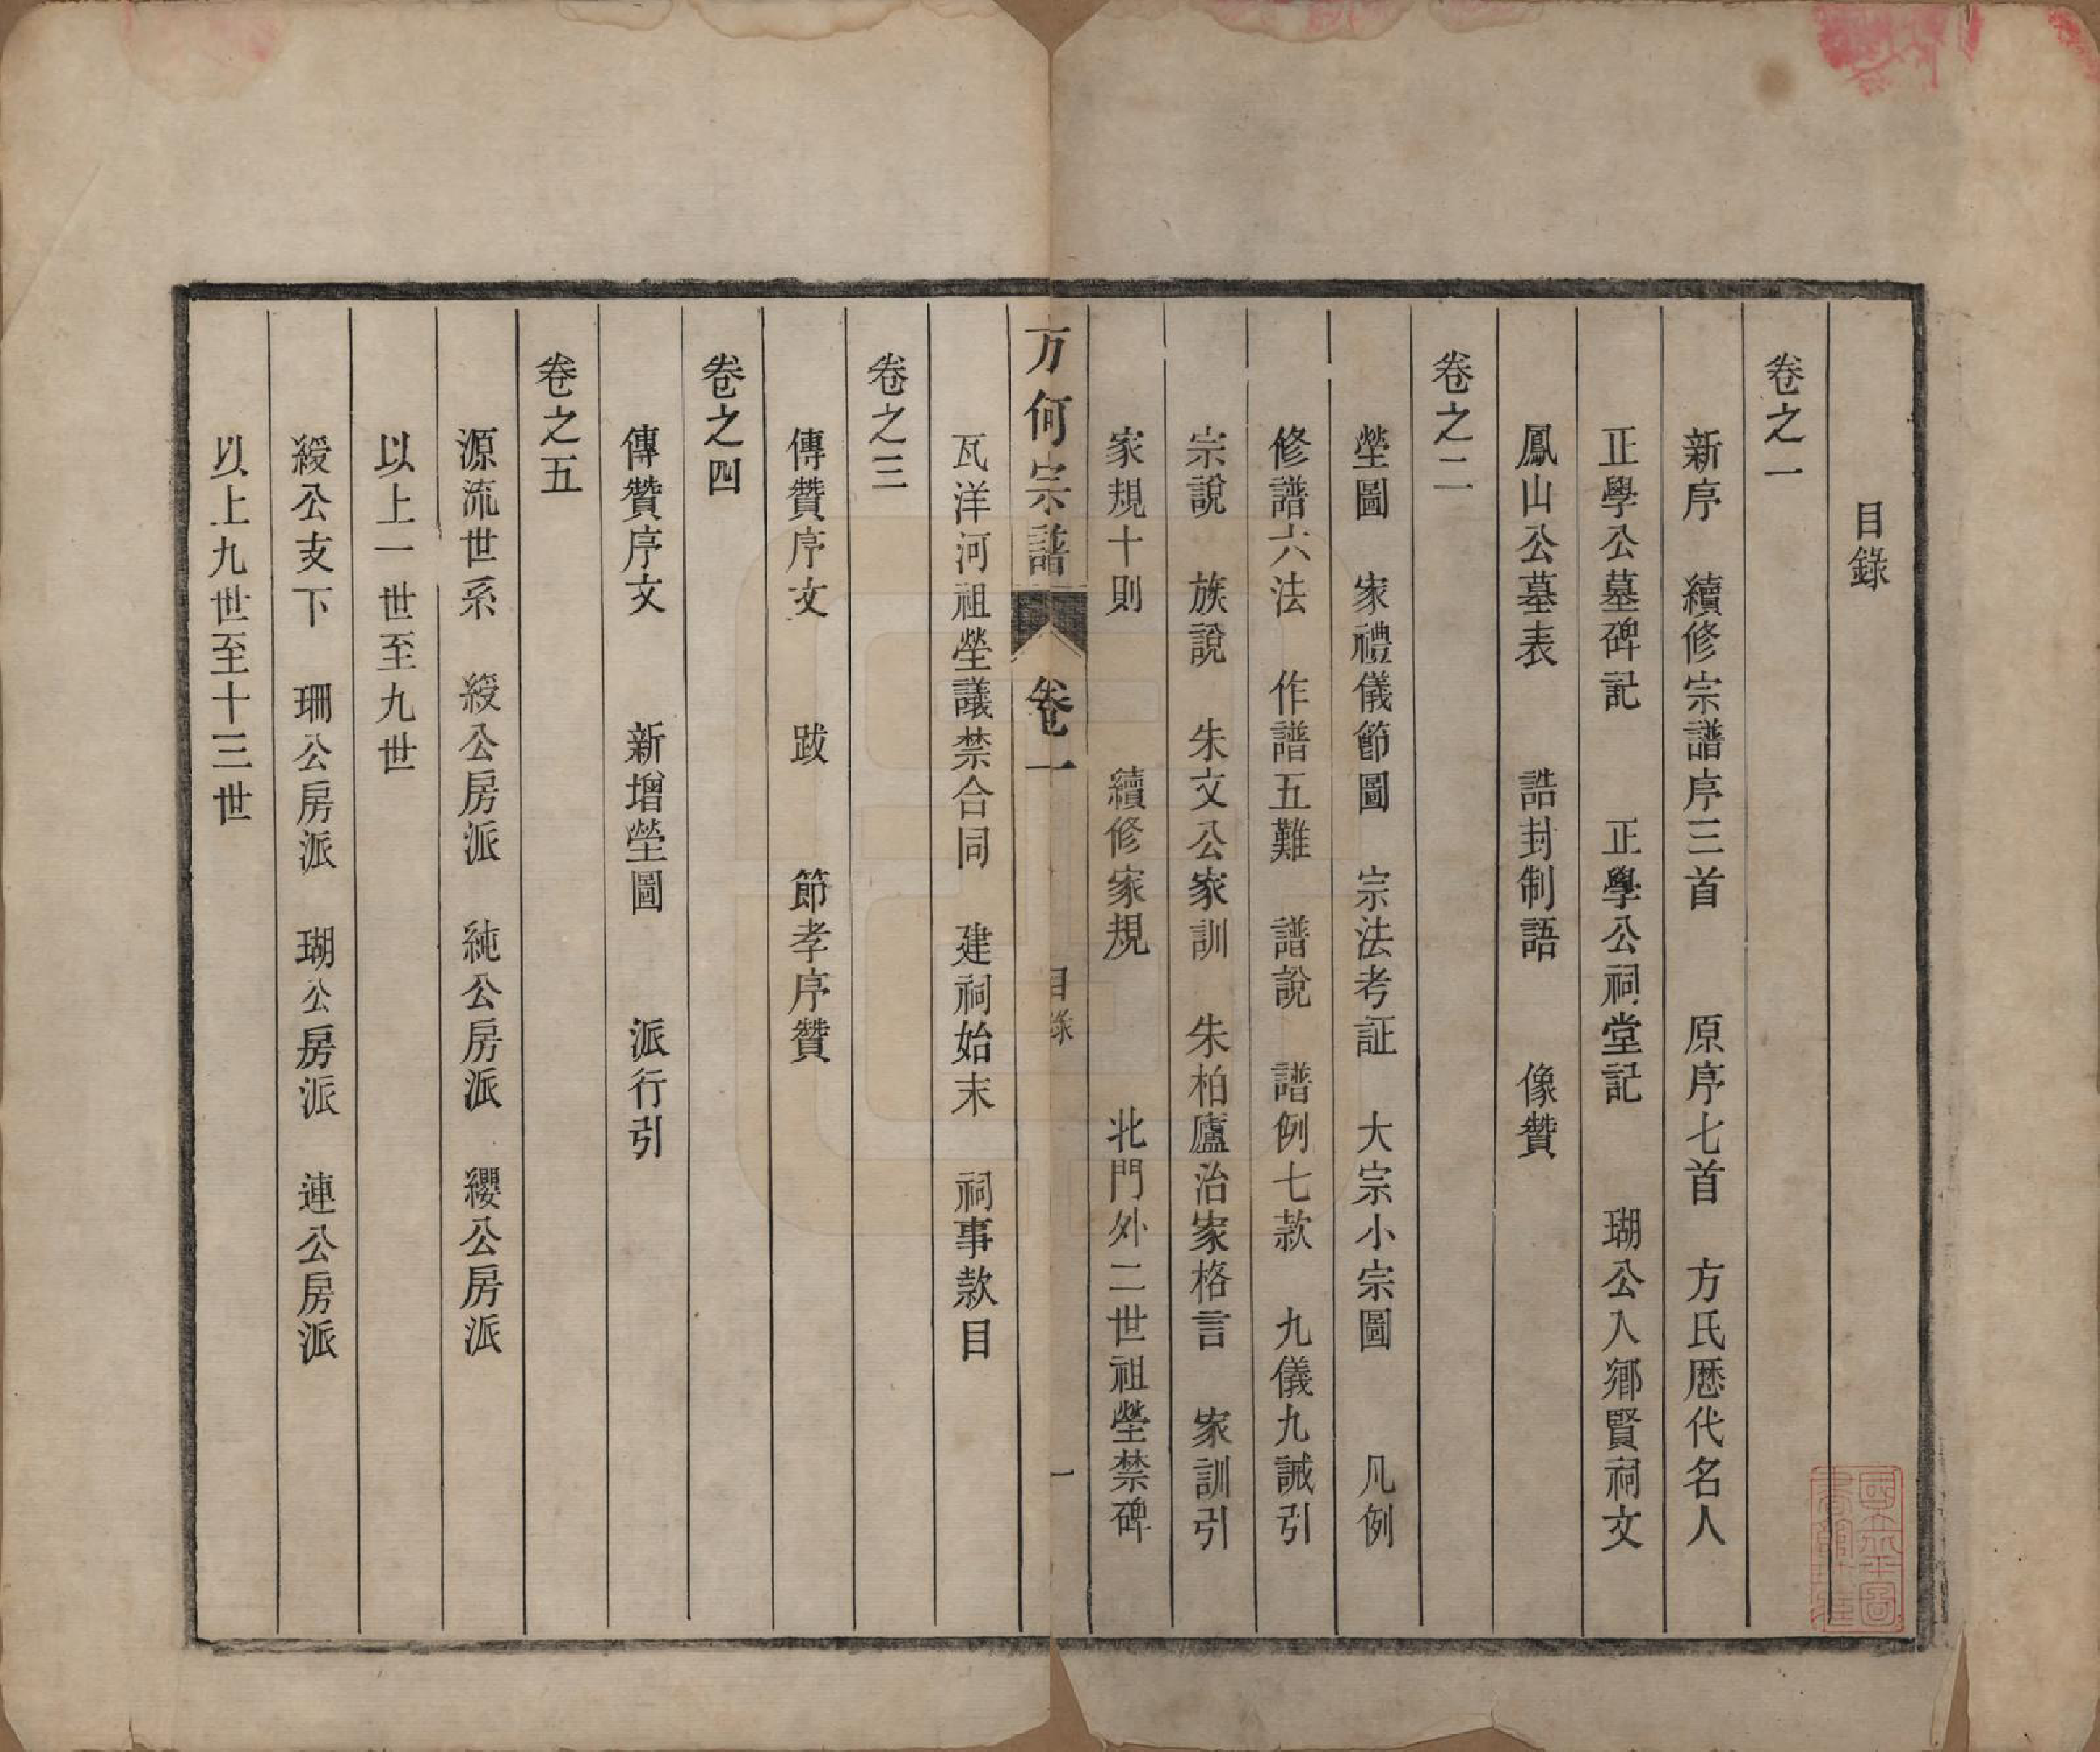 目錄
卷之一
新序　續修宗譜序三首　原序七首　方氏歷代名人
正學公墓碑記　正學公祠堂記　瑚公入鄉賢祠文
鳳山公墓表　誥封制語　像贊
卷之二
塋圖　家禮儀節圖　宗法考証　大宗小宗圖　凡例
修譜六法　作譜五難　譜說　譜例七款　九儀九誡引
宗說　族說　朱文公家訓　朱柏廬治家格言　家訓引
家規十則　續修家規　北門外二世祖塋禁碑
方何宗譜　卷一　目錄　一
瓦洋河祖塋議禁合同　建祠始末　祠事款目
卷之三
傳贊序文　跋　節孝序贊
卷之四
傳贊序文　新增塋圖　派行引
卷之五
源流世系　綬公房派　純公房派　纓公房派
以上一世至九世
綬公支下　珊公房派　瑚公房派　連公房派
以上九世至十三世